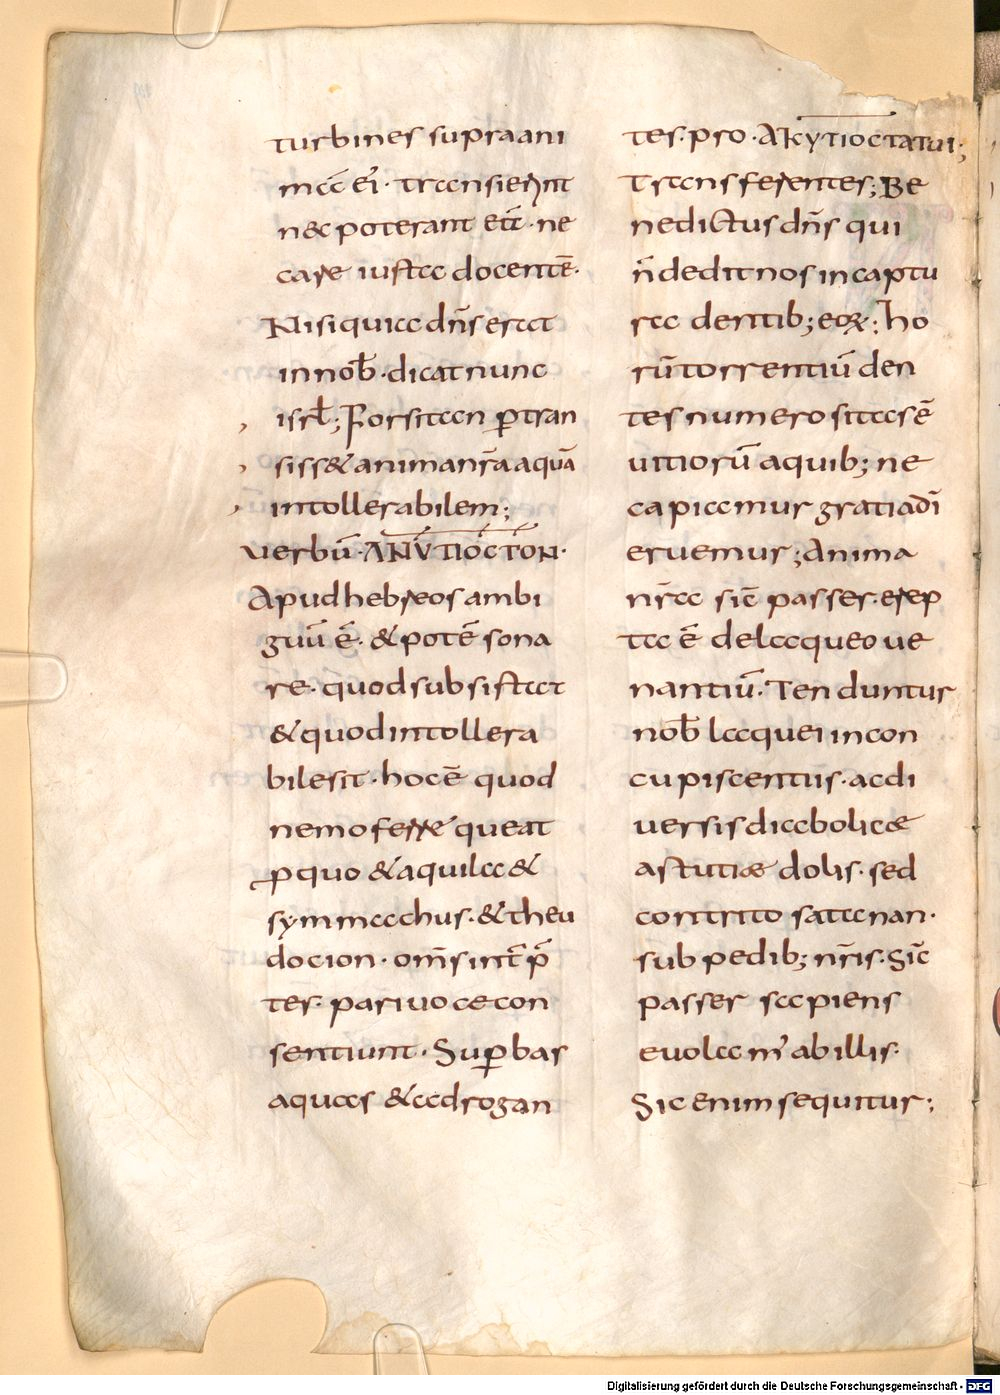 turbines supra ani
mā ei · transierunt
nec poterant etā · ne
care iusta docentē ·
Nisi quia dn̄s erat
in nob̄ · dicat nunc
isrl̄; Forsitan ꝑtran
siss& anima nr̄a aquā
intollerabilem;
Verbū · ΑΝΥΤΙΟCΤΟΝ ·
Apud hebreos ambi
guū ē · & potē sona
re · quod subsistat
& quod intollera
bile sit · hoc ē quod
nemo ferre queat
ꝑ quo & aquila &
symmachus · & theu
docion · om̄s int̄ p̄
tes · pari uoce con
sentiunt · Suꝑbas
aquas & adrogan
tes · pro · ΑΚΥΤΙΟCΤΑΤΑΙ;
Transferentes; Be
nedictus dn̄s qui
n̄ dedit nos in captu
ra dentib; eoꝝ; ho
rū torrentiū den
tes numero sitas ē
uitiorū a quib; ne
capiamur gratia dī
eruemur; Anima
nr̄a sic̄ passer · erep
ta ē de laqueo ue
nantiū · Tenduntur
nob̄ laquei in con
cupiscentiis · ac di
uersis diabolicae
astutiae dolis · sed
contrito satanan ·
sub pedib; nr̄is · Sic̄
passer sapiens
euola m̄ ab illis ·
Sic enim sequitur;
Digitalisierung gefördert durch die Deutsche Forschungsgemeinschaft - DFG